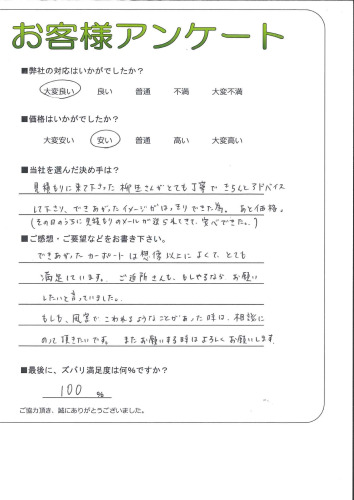 お客様アンケート
■弊社の対応はいかがでしたか？
大変良い 良い 普通 不満 大変不満
■価格はいかがでしたか？
大変安い 安い 普通 高い 大変高い
■当社を選んだ決め手は？
見積もりに来て下さった柳生さんがとても丁寧できちんとアドバイス
して下さり、できあがったイメージがはっきりできた為。あと価格。
(その日のうちに見積もりのメールが送られてきて、安心できた。)
■ご感想・ご要望などをお書き下さい。
できあがったカーポートは想像以上によくて、とても
満足しています。ご近所さんも、もしやるならお願い
したいと言っていました。
もしも、風雪でこわれるようなことがあった時は、相談に
のって頂きたいです。またお願いする時はよろしくお願いします。
■最後に、ズバリ満足度は何％ですか？
100 ％
ご協力頂き、誠にありがとうございました。